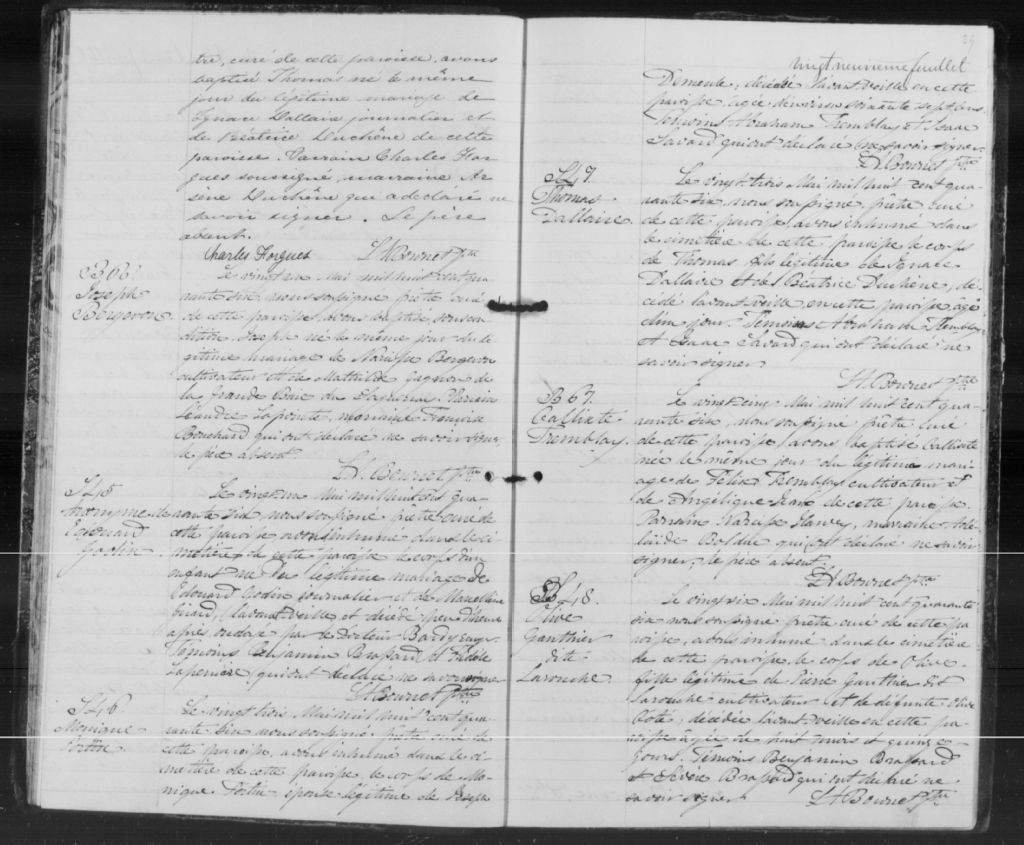 tre, curé de cette paroisse, avons
baptisé Thomas né le même
jour du légitime mariage de
Ignace Dallaire journalier et
de Béatrice Duchêne de cette
paroisse. Parrain Charles For
gues soussigné, marraine Ar
sène Duchêne qui a déclaré ne
savoir signer. Le père
absent.
Charles Forgues L. A. Bournet ptre
B 66.
Joseph
Bergeron
Le vingt un Mai mil huit cent qua
rante six nous soussigné prêtre curé
de cette paroisse, avons baptisé sous con
dition Joseph né le même jour du lé
gitime mariage de Bergeron
cultivateur et de Mathilde Gagnon de
la Grande Baie du Saguenay. Parrain
Léandre Lapointe, marraine Françoise
Bouchard qui ont déclaré ne savoir signer
le père absent.
L. A. Bournet ptre
S 45
Anonyme de
Edouard
Godin
Le vingt un Mai mil huit cent qua
rante six nous soussigné prêtre curé de
cette paroisse avons inhumé dans le ci
metière de cette paroisse le corps d'un
enfant né du légitime mariage de
Edouard Godin journalier et de Marcelline
Girard, l'avant veille et décédé peu d'heures
après ondoyé par le Docteur
Témoins Benjamin Brassard et
qui ont déclaré ne savoir signer
L. A. Bournet ptre
S 46
Monique
Fortin
Le vingt trois Mai mil huit cent qua
rante six nous soussigné prêtre curé de
cette paroisse, avons inhumé dans le ci
metière de cette paroisse le corps de Mo
nique Fortin épouse légitime de Joseph
29
vingt neuvième feuillet
Demeule, décédée l'avant veille en cette
paroisse agée d'environ soixante sept ans.
Témoins Abraham Tremblay et Isaac
Savard qui ont déclaré ne savoir signer.
L. A. Bournet ptre
S 47.
Thomas
Dallaire
Le vingt trois Mai mil huit cent qua
rante six, nous soussigné, prêtre curé
de cette paroisse, avons inhumé dans
le cimetière de cette paroisse le corps
de Thomas fils légitime de Ignace
Dallaire et de Béatrice Duchêne, dé
cédé l'avant veille en cette paroisse âgé
d'un jour. Témoins Abraham Tremblay
et Isaac Savard qui ont déclaré ne
savoir signer
L. A. Bournet ptre
B 67.
Callixte
Tremblay.
Le vingt cinq Mai mil huit cent qua
rante six, nous soussigné prêtre curé
de cette paroisse, avons baptisé Callixte
née le même jour du légitime mari
age de Félix Tremblay cultivateur et
de Angélique Jean de cette paroisse.
Parrain Narcisse Harvey, marraine Adé
laïde Bolduc qui ont déclaré ne savoir
signer, le père absent
L. A. Bournet ptre
S 48.
Olive
Gauthier
dite
Larouche.
Le vingt six Mai mil huit cent quarante
six nous soussigné prêtre curé de cette pa
roisse, avons inhumé dans le cimetière
de cette paroisse, le corps de Olive
fille légitime de Pierre Gauthier dit
Larouche cultivateur et de défunte Olive
Coté, décédée l'avant veille en cette pa
roisse agée de huit mois et quinze
jours. Témoins Benjamin Brassard
et Sévère Brassard qui ont déclaré ne
savoir signer
L. A. Bournet ptre